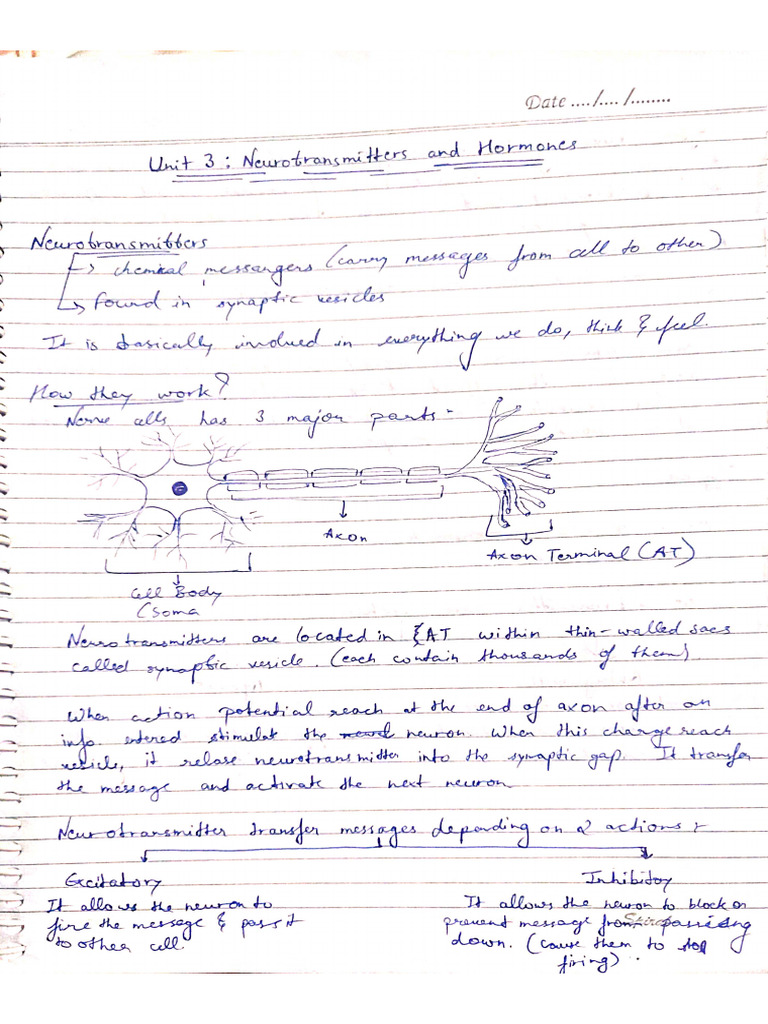 Date ..../..../........
Unit 3: Neurotransmitters and Hormones
Neurotransmitters
-> chemical messangers (carry messages from cell to other)
-> found in synaptic vesicles
It is basically involved in everything we do, think & feel.
How they work?
Nerve cells has 3 major parts -
Axon
Axon Terminal (AT)
Cell Body
(Soma
Neurotransmitters are located in AT within thin-walled sacs
called synaptic vesicle. (each contain thousands of them)
When action potential reach at the end of axon after an
info. entered stimulat the neuron. When this charge reach
vesicle, it relase neurotransmitter into the synaptic gap. It transfer
the message and activate the next neuron
Neurotransmitter transfer messages depending on 2 actions :
Excitatory
Inhibitoy
It allows the neuron to
fire the message & pass it
to other cell.
It allows the neuron to block or
prevent message from passieng
down. (cause them to stop
firing).